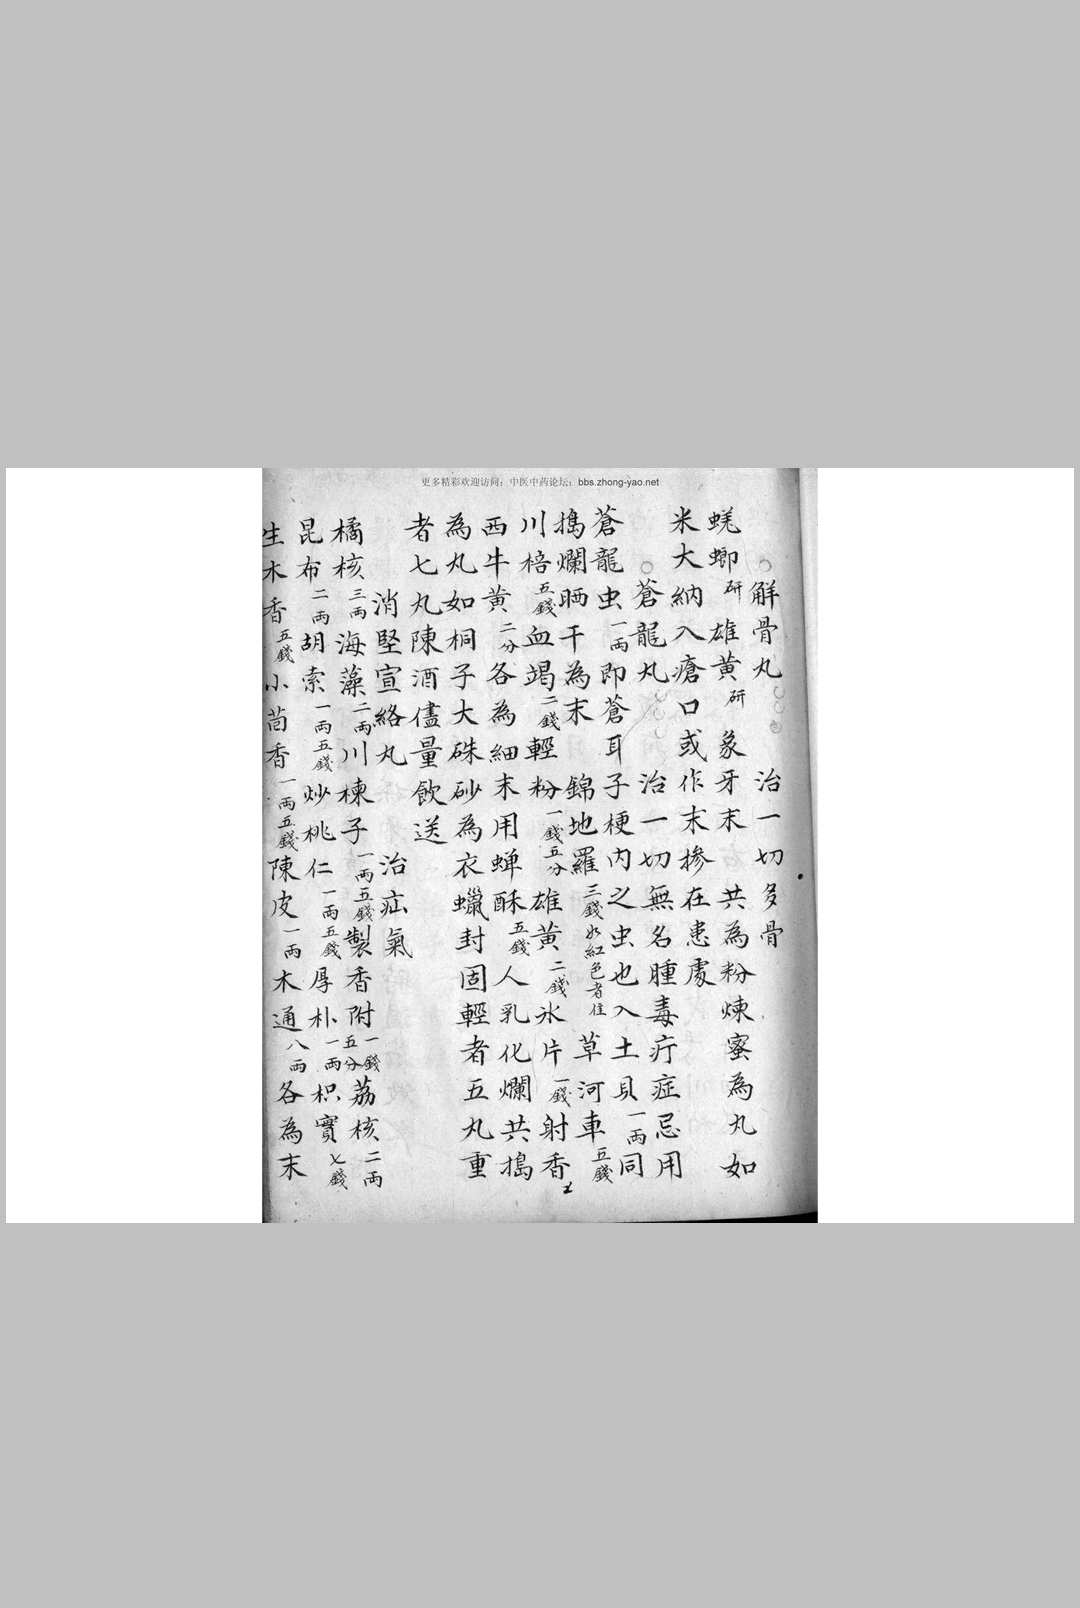 更多精彩欢迎访问：中医中药论坛：bbs.zhong-yao.net
解骨丸 治一切多骨
蜣螂研 雄黃研 象牙末 共為粉煉蜜為丸如
米大納入瘡口或作末摻在患處
蒼龍丸 治一切無名腫毒疔症忌用
蒼龍虫一両即蒼耳子梗內之虫也入土貝一両同
搗爛晒干為末 錦地羅三錢如紅色者佳 草河車五錢
川棓五錢血竭二錢輕粉一錢五分雄黃二錢氷片一錢射香
西牛黃二分各為細末用蝉酥五錢人乳化爛共搗
為丸如桐子大硃砂為衣蠟封固輕者五丸重
者七丸陳酒儘量飲送
消堅宣絡丸 治疝氣
橘核三両海藻二両川楝子一両五錢製香附一錢五分荔核二両
昆布二両胡索一両五錢炒桃仁一両五錢厚朴一両枳實七錢
生木香五錢小茴香一両五錢陳皮一両木通八両各為末